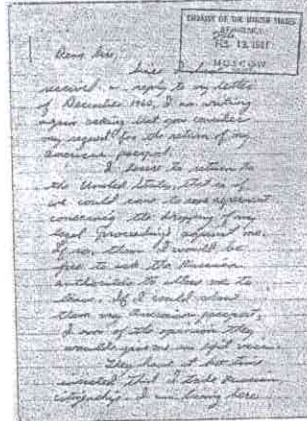 EMBASSY OF THE UNITED STATES
FEB 13, 1961
MOSCOW
Dear Sirs,
Since I have not
received a reply to my letter
of December 1960, I am writing
again asking that you consider
my request for the return of my
American passport.
I desire to return to
the United States, that is if
we could come to some agreement
concerning the dropping of any
legal proceedings against me.
If so, then I would be
free to ask the Russian
authorities to allow me to
leave. If I could show
them my American passport,
I am of the opinion they
would give me an exit visa.
They have at no time
insisted that I take Russian
citizenship. I am living here